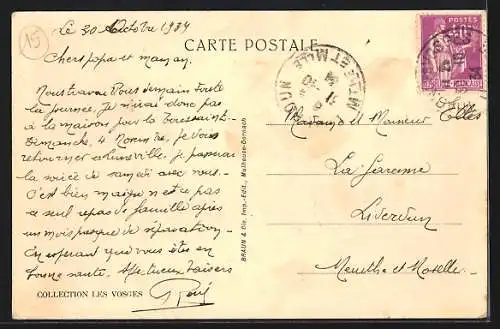 15
Le 30 Octobre 1934
CARTE POSTALE
POSTES
Chers papa et maman,
Nous travaillons demain toute
la journée, je n'irai donc pas
à la maison pour la Toussaint.
Dimanche, 4 Novembre, je vous
retournerai à Lunéville, je passerai
la soirée de samedi avec vous.
C'est bien maigre n'est ce pas
ce seul repas de famille après
un mois presque de séparation.
En espérant que vous êtes en
bonne santé. Affectueux baisers
COLLECTION LES VOSGES
BRAUN & Cie, Imp.-Édit., Mulhouse-Dornach
MEURTHE ET MLLE
Madame et Monsieur
La Garenne
Liverdun
Meurthe et Moselle